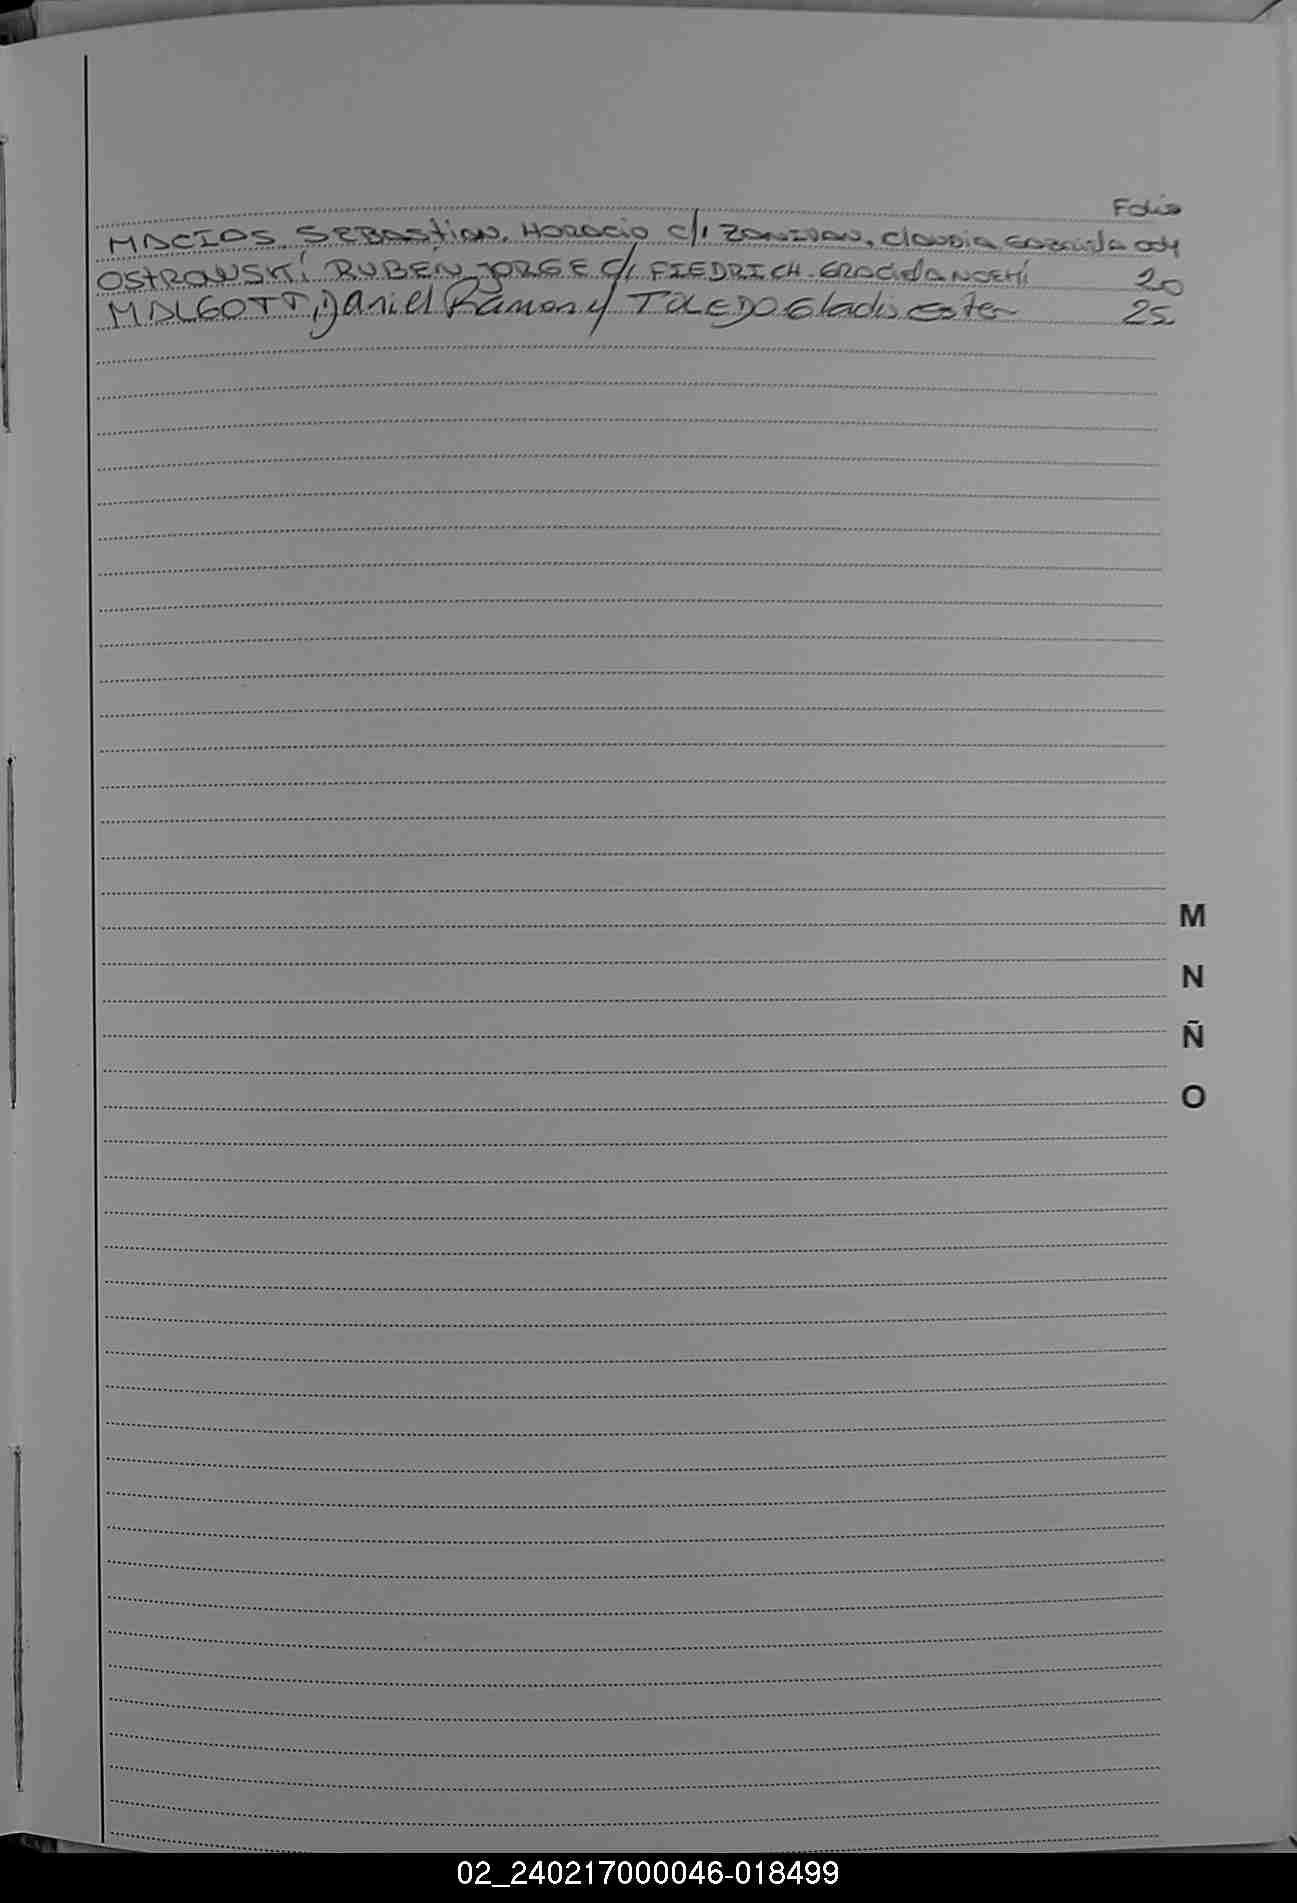 Folio
MACIAS, SEBASTIAN, HORACIO C/, ZANIVAN, CLAUDIA GABRIELA 004
OSTROWSKÍ RUBÉN JORGE C/, FIEDRICH GRACIELA NOEMÍ 20
MALGOTT, Daniel Ramon y TOLEDO Gladis Ester 25
M
N
Ñ
O
02_240217000046-018499